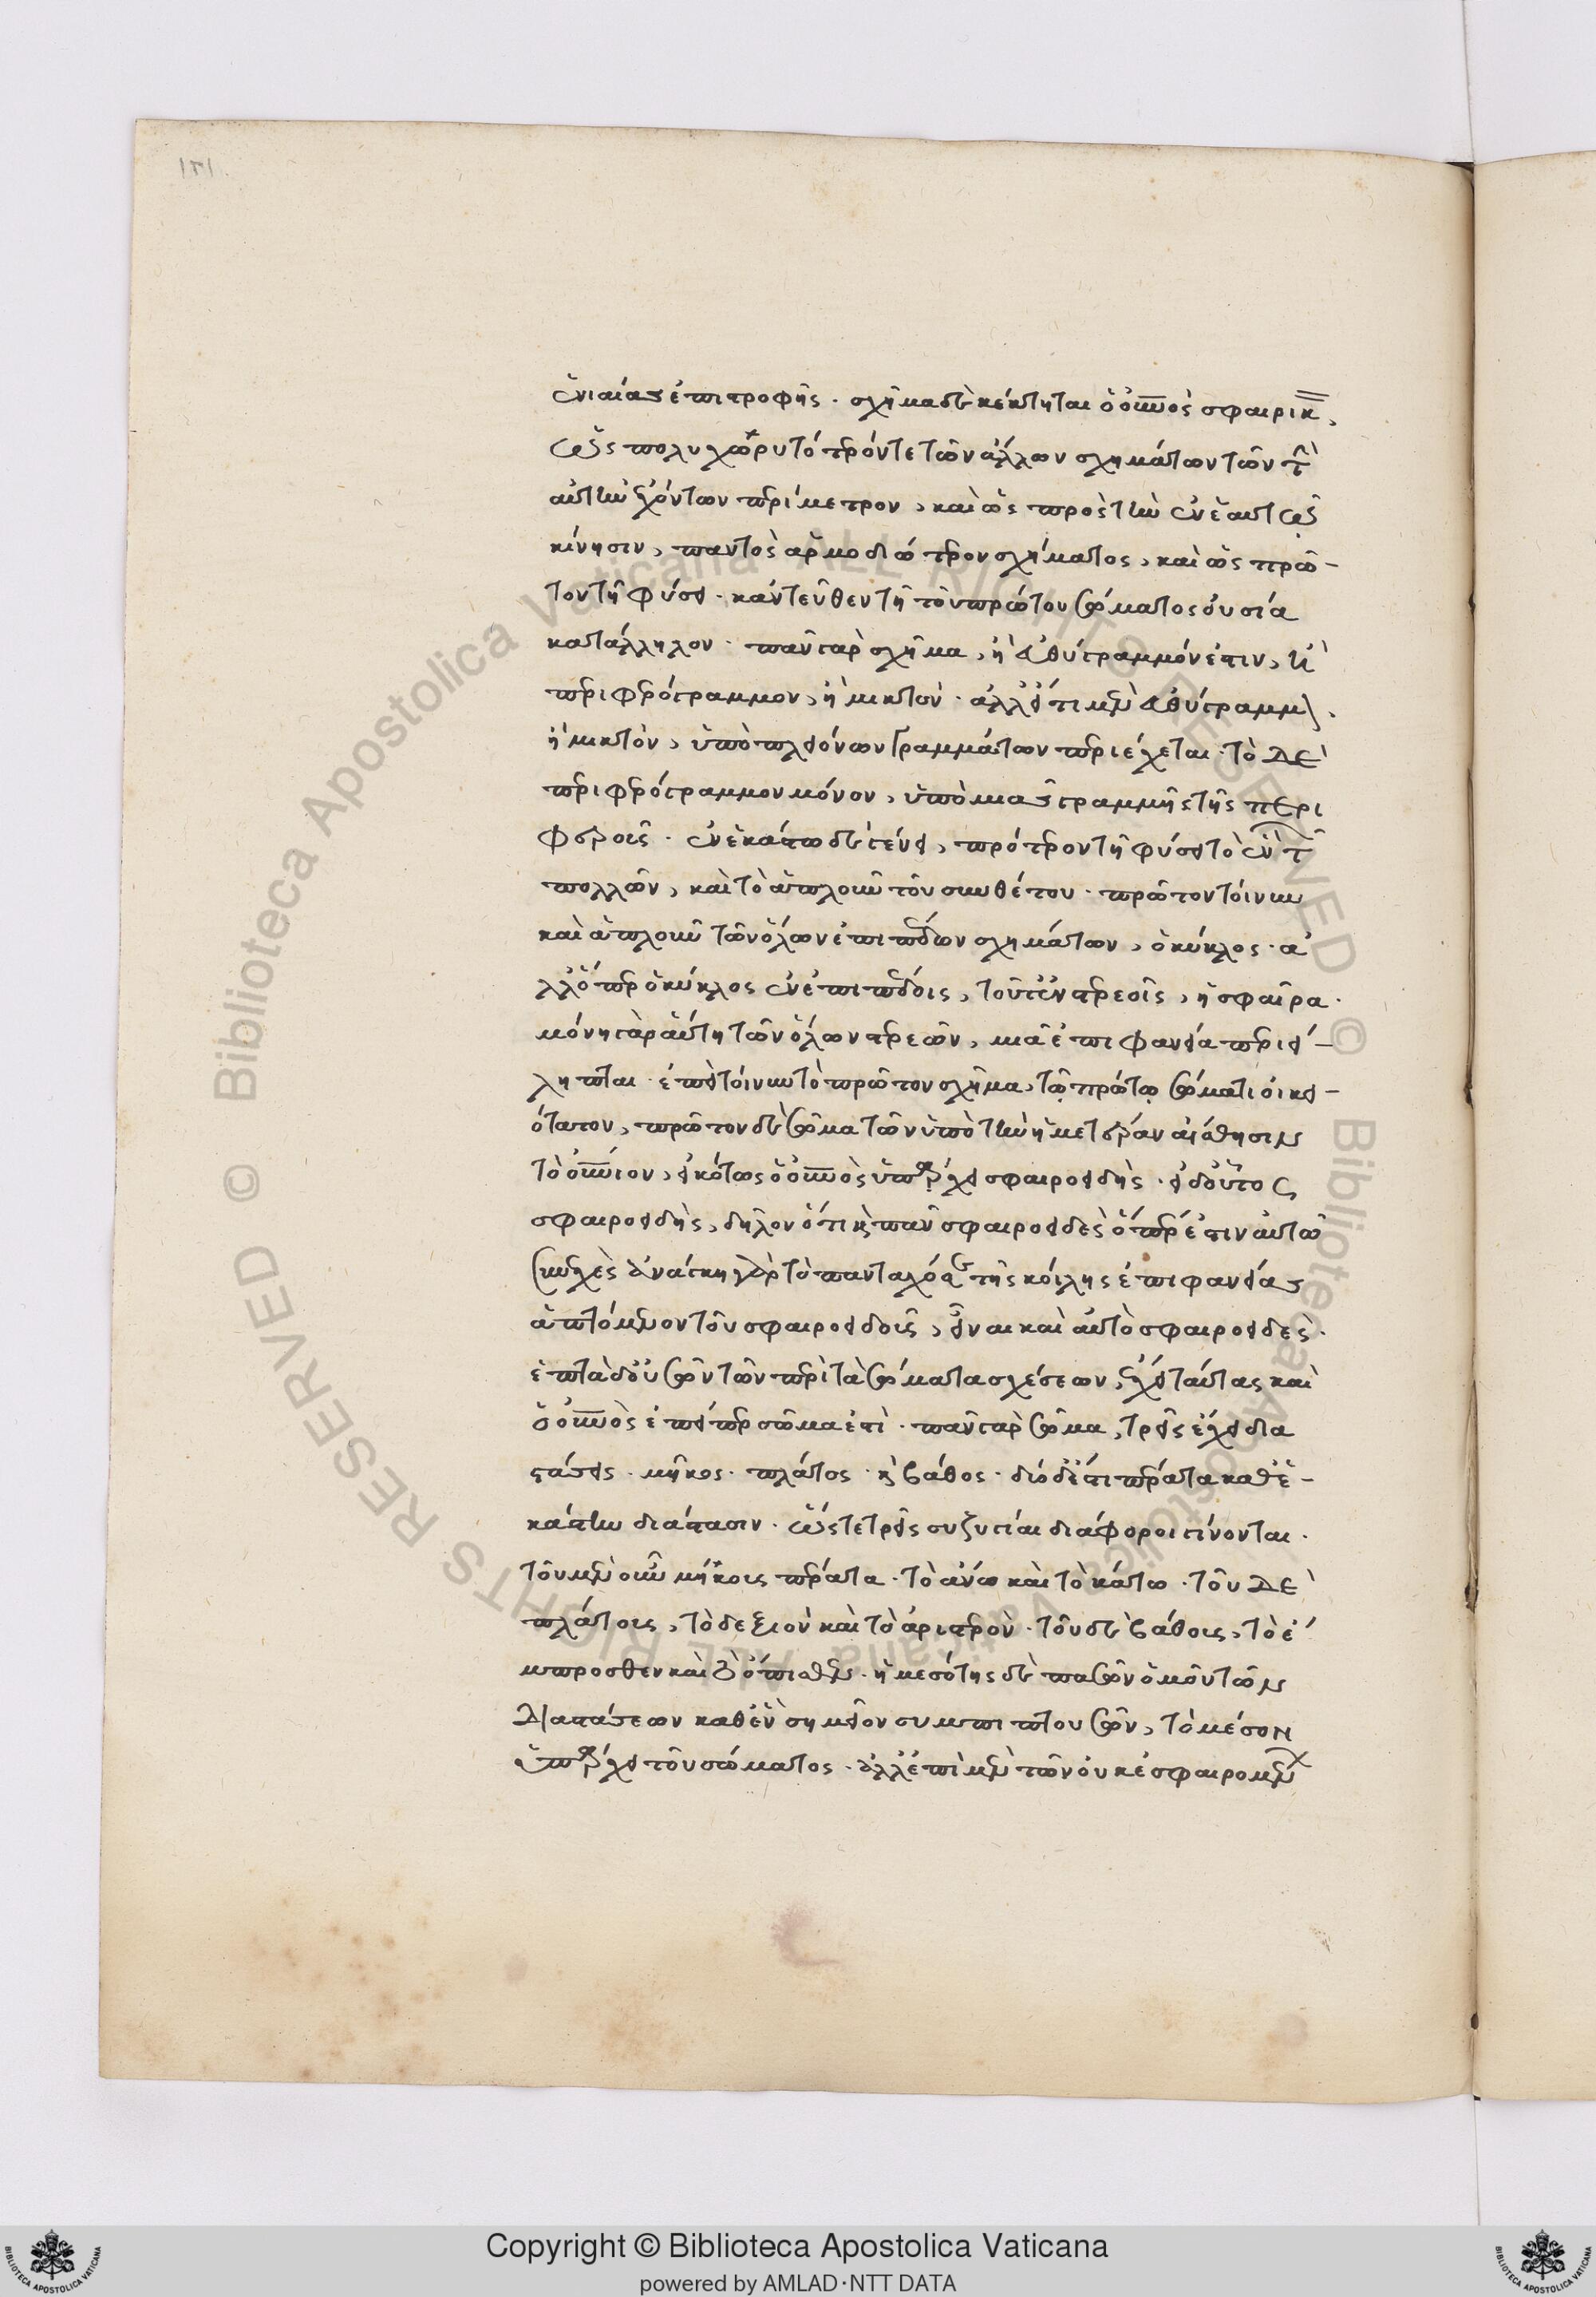 ἐνιαίας ἐπιστροφῆς. σχῆμα δὲ κέκτηται ὁ οὐνος σφαιρικ,
ὡς πολυχωρητότερόν τε τῶν ἄλλων σχημάτων τῶν τ
αὐτὴν ἐχόντων περίμετρον, καὶ ὡς πρὸς τὴν ἐν ἑαυτῶ
κίνησιν, παντὸς ἁρμοδιώτερον σχήματος, καὶ ὡς πρῶ-
τον τῆ φύσει. κἀντεῦθεν τῆ τοῦ πρώτου σώματος οὐσία
κατάλληλον. πᾶν γὰρ σχῆμα, ἢ εὐθύγραμμόν ἐστιν, ἢ
περιφερόγραμμον, ἢ μικτόν. ἀλλ' εἴ τι μὲν εὐθύγραμμ,
ἢ μικτὸν, ὑπὸ πλειόνων γραμμάτων περιέχεται. τὸ δὲ
περιφερόγραμμον μόνον, ὑπὸ μιας γραμμῆς τῆς περι
φεροῦς. ἐν ἑκάστω δὲ γένει, πρότερον τῆ φύσει τὸ ἓν τ
πολλῶν, καὶ τὸ ἁπλοῦν τοῦ συνθέτου. πρῶτον τοίνυν
καὶ ἁπλοῦν τῶν ὅλων ἐπιπέδων σχημάτων, ὁ κύκλος. ἀ
λλ' ὅπερ ὁ κύκλος ἐν ἐπιπέδοις, τοῦτ' ἐν στερεοῖς, ἡ σφαῖρα.
μόνη γὰρ αὕτη τῶν ὅλων στερεῶν, μιᾶ ἐπιφανεία περιεί-
ληπται. ἐπεὶ τοίνυν τὸ πρῶτον σχῆμα, τῶ πρώτω σώματι οἰκει-
ότατον, πρῶτον δὲ σῶμα τῶν ὑπὸ τὴν ἡμετέραν αἴσθησιν
τὸ οὐνιον, εἰκότως ὁ οὐνος ὑπάρχει σφαιροειδής. εἰ δ' οὗτος
σφαιροειδὴς, δῆλον ὅτι καὶ πᾶν σφαιροειδὲς ὅπερ ἐστιν αὐτῶ
συνεχὲς ἀνάγκη γὰρ τὸ πανταχόθεν τῆς κοίλης ἐπιφανείας
ἁπτόμενον τοῦ σφαιροειδοῦς, εἶναι καὶ αὐτὸ σφαιροειδές.
ἑπτὰ δ' οὐσῶν τῶν περὶ τὰ σώματα σχέσεων, ἔχει ταύτας καὶ
ὁ οὐνος ἐπείπερ σῶμα ἐστὶ. πᾶν γὰρ σῶμα, τρεῖς ἔχει δια
στάσεις. μῆκος. πλάτος. καὶ βάθος. δύο δ' ἐστι πέρατα καθ' ἑ-
κάστην διάστασιν. ὥστε τρεῖς συζυγίαι διάφοροι γίνονται.
τοῦ μὲν οὖν μήκους πέρατα. τὸ ἄνω καὶ τὸ κάτω. τοῦ δὲ
πλάτους, τὸ δεξιὸν καὶ τὸ ἀριστερόν. τοῦ δὲ βάθους, τὸ ἔ
μπροσθεν καὶ τὸ ὄπισθεν. ἡ μεσότης δὲ πασῶν ὁμοῦ τῶν
διαστάσεων καθ' ἓν σημεῖον συμπιπτουσῶν, τὸ μέσον
ὑπάρχει τοῦ σώματος. ἀλλ' ἐπὶ μὲν τῶν οὐκ ἐσφαιρομέν